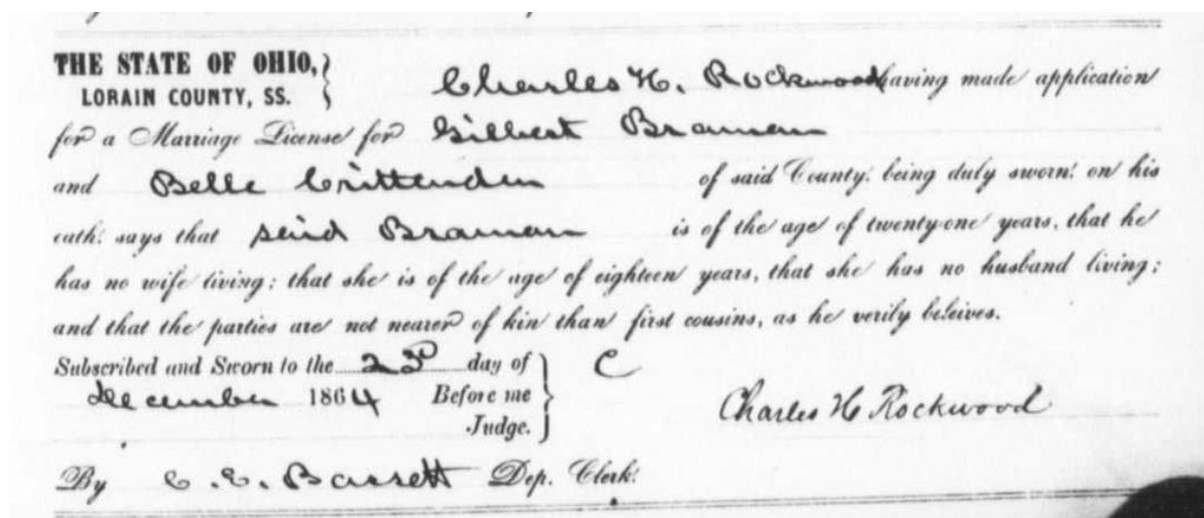 THE STATE OF OHIO, }
LORAIN COUNTY, SS. } Charles H. Rockwood having made application
for a Marriage License for Gilbert Braman
and Belle Crittenden of said County, being duly sworn, on his
oath, says that said Braman is of the age of twenty-one years, that he
has no wife living; that she is of the age of eighteen years, that she has no husband living;
and that the parties are not nearer of kin than first cousins, as he verily beleives.
Subscribed and Sworn to the 23d day of } C
December 1864 Before me }
Judge. } Charles H Rockwood
By C. E. Bassett Dep. Clerk.